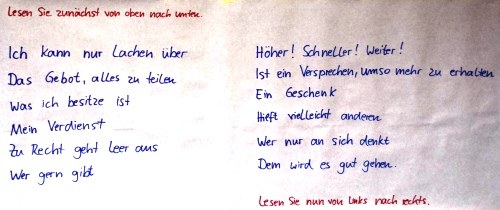 Lesen Sie zunächst von oben nach unten.
Ich kann nur Lachen über
Das Gebot, alles zu teilen
Was ich besitze ist
Mein Verdienst
Zu Recht geht leer aus
Wer gern gibt
Höher! Schneller! Weiter!
Ist ein Versprechen, umso mehr zu erhalten
Ein Geschenk
Hilft vielleicht anderen
Wer nur an sich denkt
Dem wird es gut gehen.
Lesen Sie nun von links nach rechts.